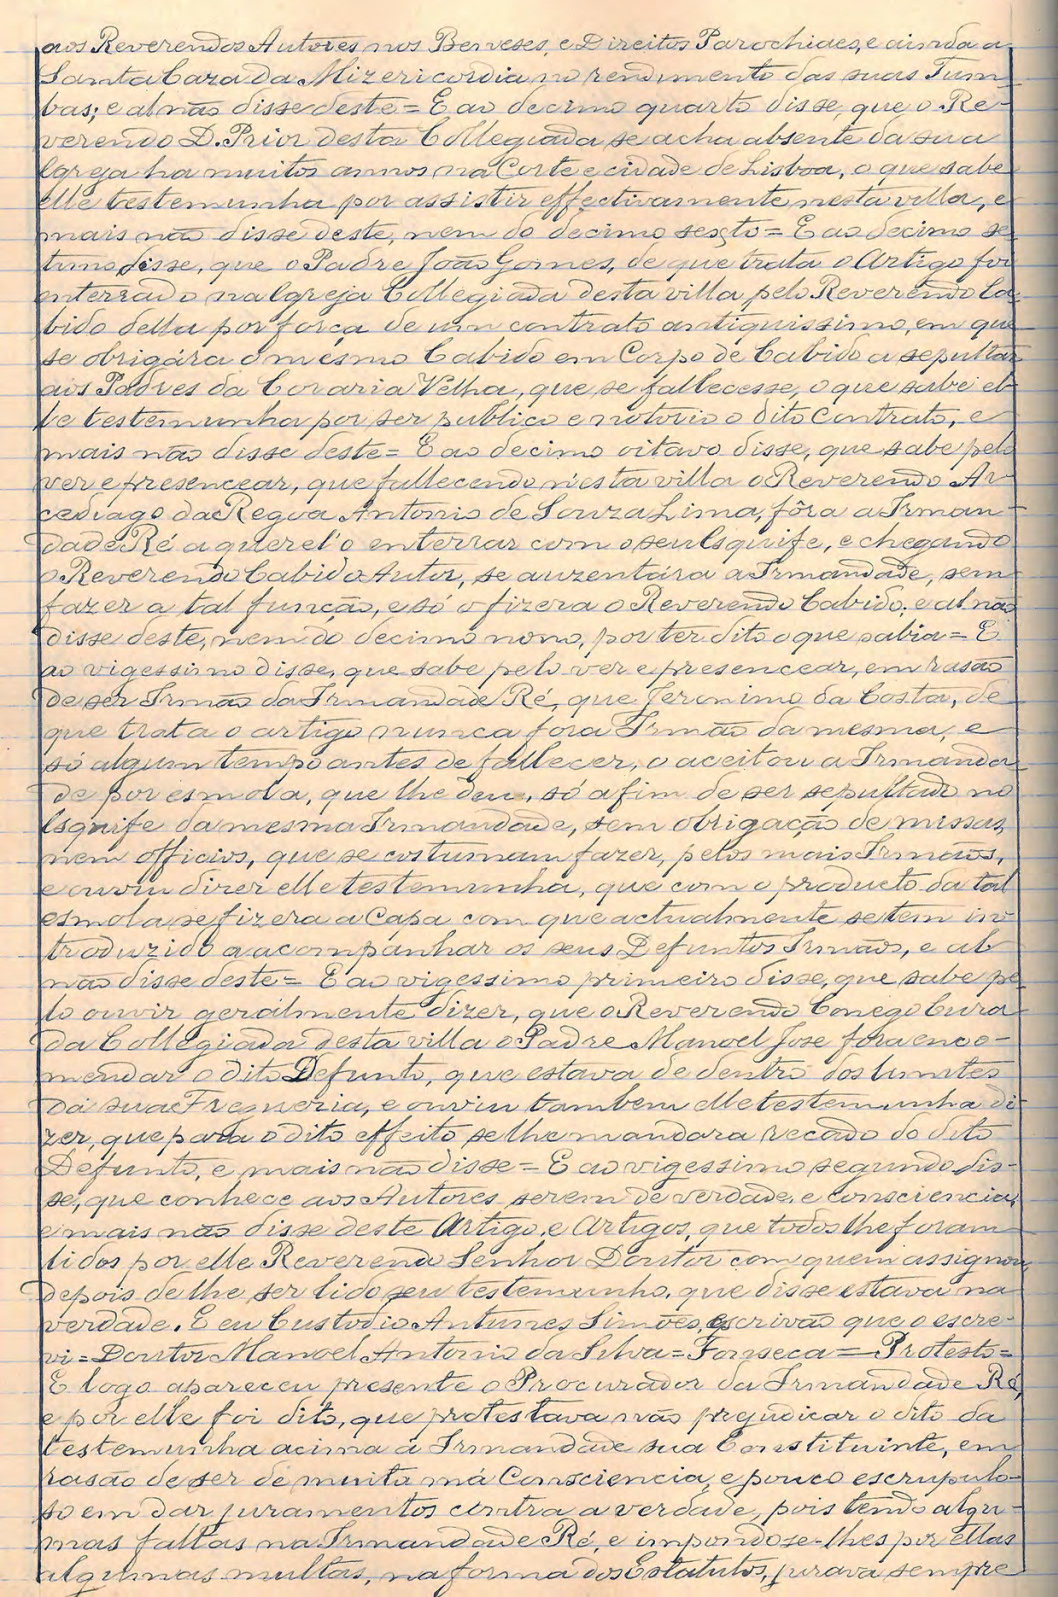 aos Reverendos Autores nos Benveses, e Direitos Parochiaes, e ainda a
Santa Caza da Mizericordia no rendimento das suas Tum
bas; e al não disse deste = E ao decimo quarto disse, que o Re-
verendo D. Prior desta Collegiada se acha absente da sua
Igreja ha muitos annos na Corte e cidade de Lisboa, o que sabe
elle testemunha por assistir effectivamente nesta villa, e
mais não disse deste, nem do decimo sexto = E ao decimo se
timo disse, que o Padre João Gomes, de que trata o Artigo foi
enterrado na Igreja Collegiada desta villa pelo Reverendo Ca-
bido della por força de um contrato antiquissimo, em que
se obrigára o mesmo Cabido em Corpo de Cabido a sepultar
aos Padres da Coraria Velha, que se fallecesse, o que sabe el-
le testemunha por ser publico e notorio o dito Contrato, e
mais não disse deste = E ao decimo oitavo disse, que sabe pelo
ver e presencear, que fallecendo nesta villa o Reverendo Ar-
cediago da Regua Antonio de Souza Lima, fôra a Irman-
dade Ré a querel'o enterrar com o seu Esquife, e chegando
o Reverendo Cabido Autor, se auzentára a Irmandade, sem
fazer a tal função, e só o fizera o Reverendo Cabido; e al não
disse deste, nem do decimo nono, por ter dito o que sabia = E
ao vigessimo disse, que sabe pelo ver e presencear, em rasão
de ser Irmão da Irmandade Ré, que Jeronimo da Costa, de
que trata o artigo nunca fora Irmão da mesma, e
só algum tempo antes de fallecer, o aceitou a Irmanda-
de por esmola, que lhe deu, só afim de ser sepultado no
Esquife da mesma Irmandade, sem obrigação de missas,
nem officios, que se costumam fazer, pelos mais Irmãos,
e ouviu dizer elle testemunha, que com o producto da tal
esmola se fizera a Capa com que actualmente se tem in
troduzido a acompanhar os seus Defuntos Irmãos, e al
não disse deste = E ao vigessimo primeiro disse, que sabe pe
lo ouvir geralmente dizer, que o Reverendo Conego Cura
da Collegiada desta villa o Padre Manoel Jose fora enco-
mendar o dito Defunto, que estava de dentro dos limites
da sua Freguezia, e ouviu tambem elle testemunha di-
zer, que para o dito effeito se lhe mandara recado do dito
Defunto, e mais não disse = E ao vigessimo segundo dis-
se, que conhece aos Autores serem de verdade, e consciencia,
e mais não disse deste Artigo, e Artigos, que todos lhe foram
lidos por elle Reverend Senhor Doutor com quem assignou,
depois de lhe ser lido seu testemunho, que disse estava na
verdade. E eu Custodio Antunes Simões, Escrivão que o escre-
vi = Doutor Manoel Antonio da Silva = Fonseca = Protesto =
E logo apareceu presente o Procurador da Irmandade Ré,
e por elle foi dito, que protestava não prejudicar o dito da
testemunha acima á Irmandade sua Constituinte, em
rasão de ser de muito má Consciencia, e pouco escrupulo-
so em dar juramentos contra a verdade, pois tendo algu-
mas faltas na Irmandade Ré, e impondo-se-lhes por ellas
algumas multas, na forma dos Estatutos, jurava sempre